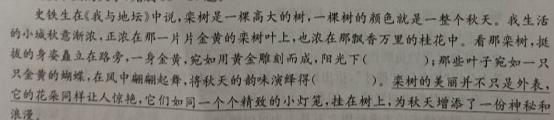 史铁生在《我与地坛》中说,栾树是一棵高大的树,一棵树的颜色就是一整个秋天。我生活
的小城秋意渐浓,正浓在那一片片金黄的栾树叶上,也浓在那飘香万里的桂花中。看那栾树,挺
拔的身姿矗立在路旁,一身金黄,宛如用黄金雕刻而成,阳光下(  );那些叶子宛如一只
只金黄的蝴蝶,在风中翩翩起舞,将秋天的韵味演绎得(  )。栾树的美丽并不只是外表,
它的花朵同样让人惊艳,它们如同一个个精致的小灯笼,挂在树上,为秋天增添了一份神秘和
浪漫。